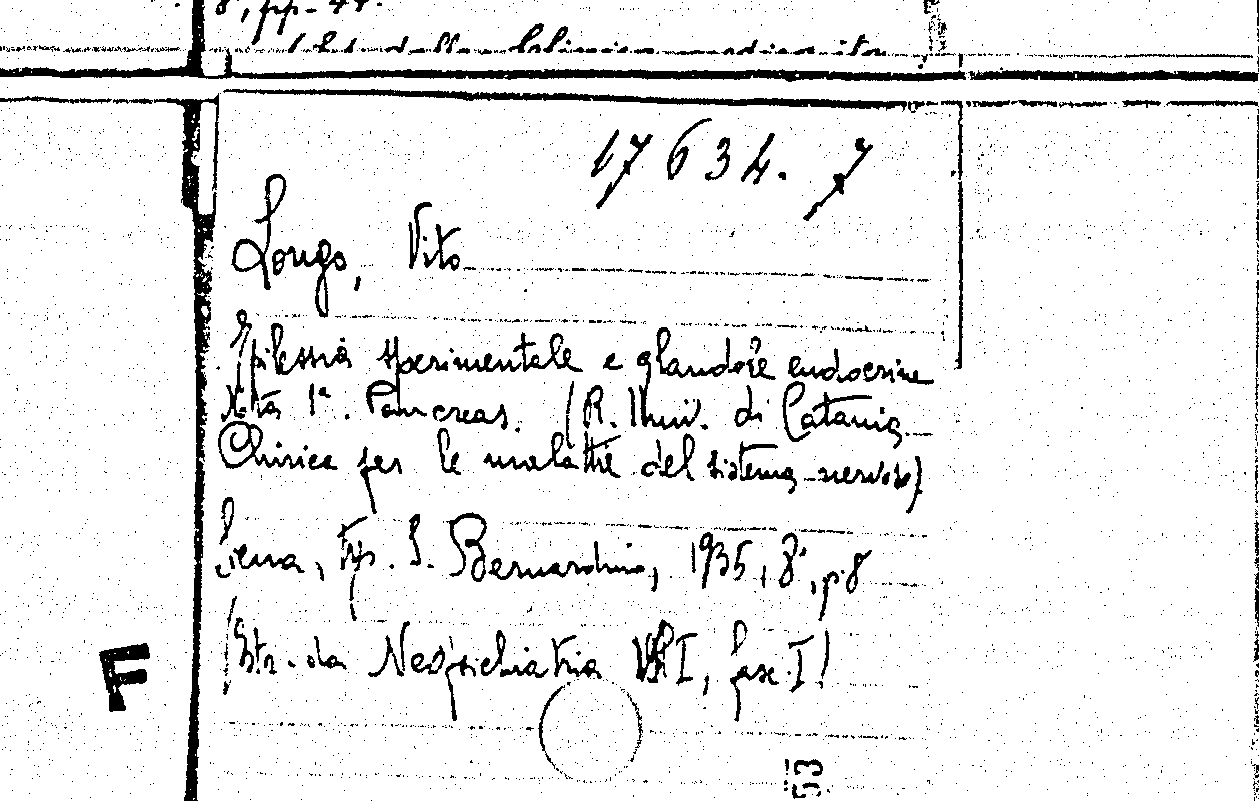 8°, pp. 44.
17634. 7
Longo, Vito
Epilessia sperimentale e glandole endocrine
Nota 1ª. Pancreas. (R. Univ. di Catania
Clinica per le malattie del sistema nervoso)
Siena, Tip. S. Bernardino, 1935, 8°, p. 8
(Estr. da Neopsichiatria Vol I, fasc. I)
F
53